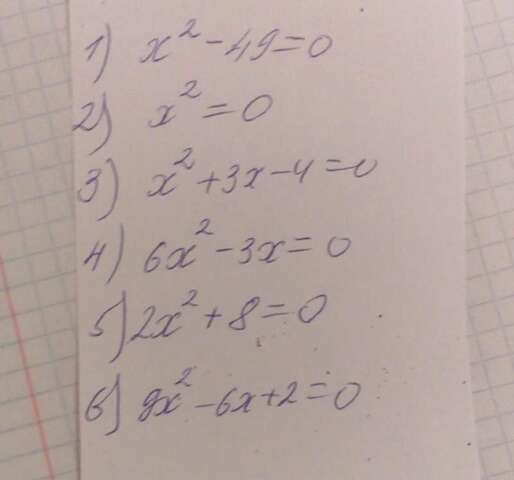 1) x² - 49 = 0
2) x² = 0
3) x² + 3x - 4 = 0
4) 6x² - 3x = 0
5) 2x² + 8 = 0
6) 9x² - 6x + 2 = 0